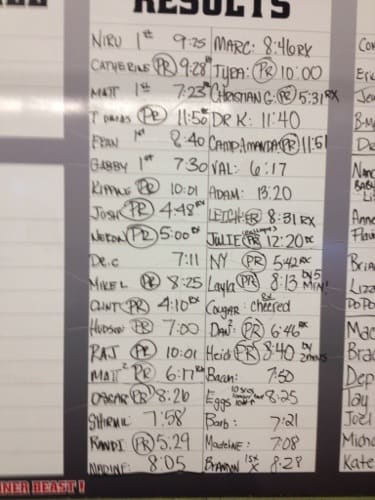 RESULTS
NIRU 1st 9:25 MARC: 8:46 RX
CATHERINE PR 9:28 TYRA: PR 10:00
MATT 1st 7:23 CHRISTIAN G: PR 5:31 RX
THOMAS PR 11:50 DR K: 11:40
FERN 1st 8:40 CAMP AMANDA PR 11:51
GABBY 1st 7:30 VAL: 6:17
KIPPING PR 10:01 ADAM: 13:20
JOSH PR 4:48 RX LEIGH: PR 8:31 RX
PR 5:00 RX JULIE PR 12:20 RX
DR. C 7:11 NY PR 5:42 RX
MIKE L PR 8:25 Layla PR 8:13 by 5 MIN!
CLINT PR 4:10 RX Cougar: cheered
HUDSON PR 7:00 Dan: PR 6:46 RX
RAJ PR 10:01 Heidi PR 8:40 by 2 mins
MATT 2 PR 6:17 RX Bacon: 7:50
OSCAR PR 8:26 Eggs 8:25
7:58 Barb: 7:21
RANDI PR 5:29 Madeline: 7:08
NADINE: 8:05 BRANDON 1st X 8:28
INNER BEAST!